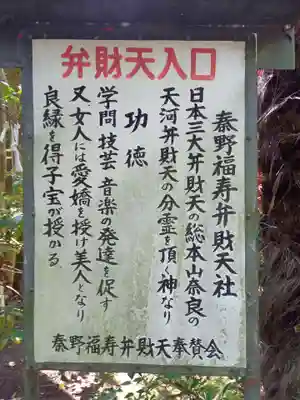 弁財天入口
秦野福寿弁財天社
日本三大弁財天の総本山奈良の
天河弁財天の分霊を頂く神なり
功徳
学問技芸音楽の発達を促す
又、女人には愛嬌を授け美人となり
良縁を得子宝が授かる。
秦野福寿弁財天奉賛会